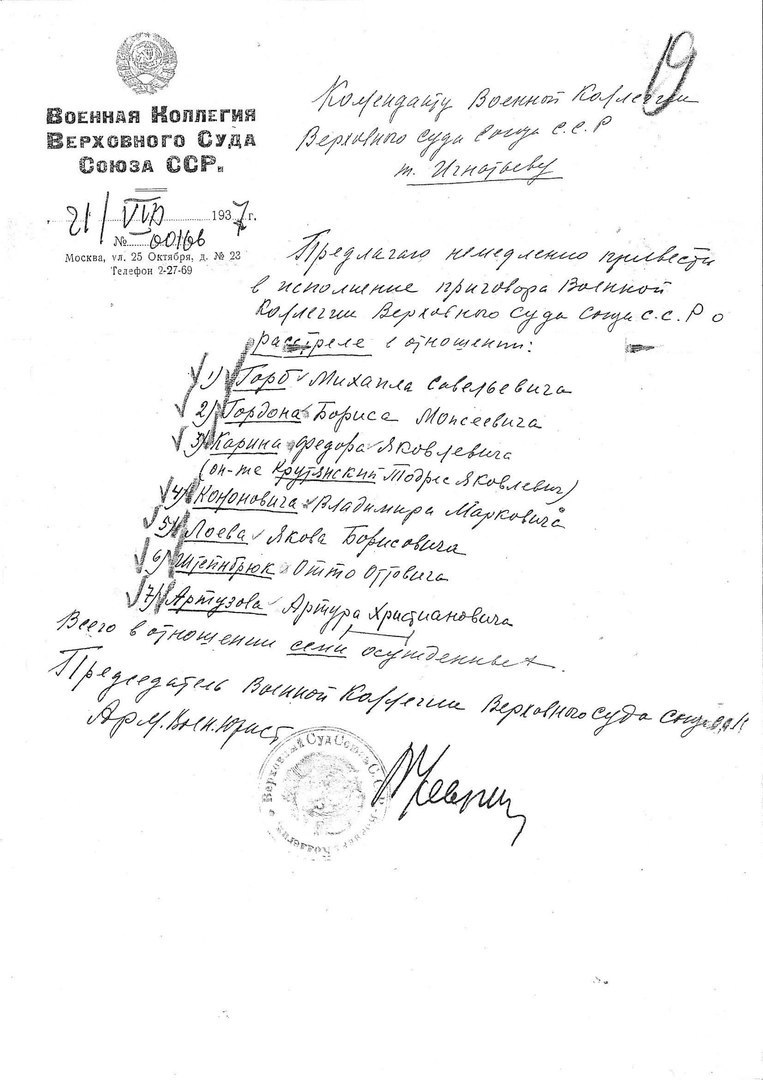 19
Военная Коллегия
Верховного Суда
Союза ССР.
21/VIII 1937 г.
№ 00166
Москва, ул. 25 Октября, д. № 23
Телефон 2-27-69
Коменданту Военной Коллегии
Верховного Суда Союза С.С.Р
т. Игнатьеву
Предлагаю немедленно привести
в исполнение приговора Военной
Коллегии Верховного Суда Союза С.С.Р о
расстреле в отношении:
1) Горб Михаила Савельевича
2) Гордона Бориса Моисеевича
3) Карина Федора Яковлевича
(он-же Крутянский Тодрес Яковлевич)
4) Кононовича Владимира Марковича
5) Лоева Якова Борисовича
6) Штейнбрюк Отто Оттовича
7) Артузова Артура Христиановича
Всего в отношении семи осужденных.
Председатель Военной Коллегии Верховного Суда Союза
Арм.Воен.Юрист
Верховный Суд Союза С.С.Р.
Коллегия